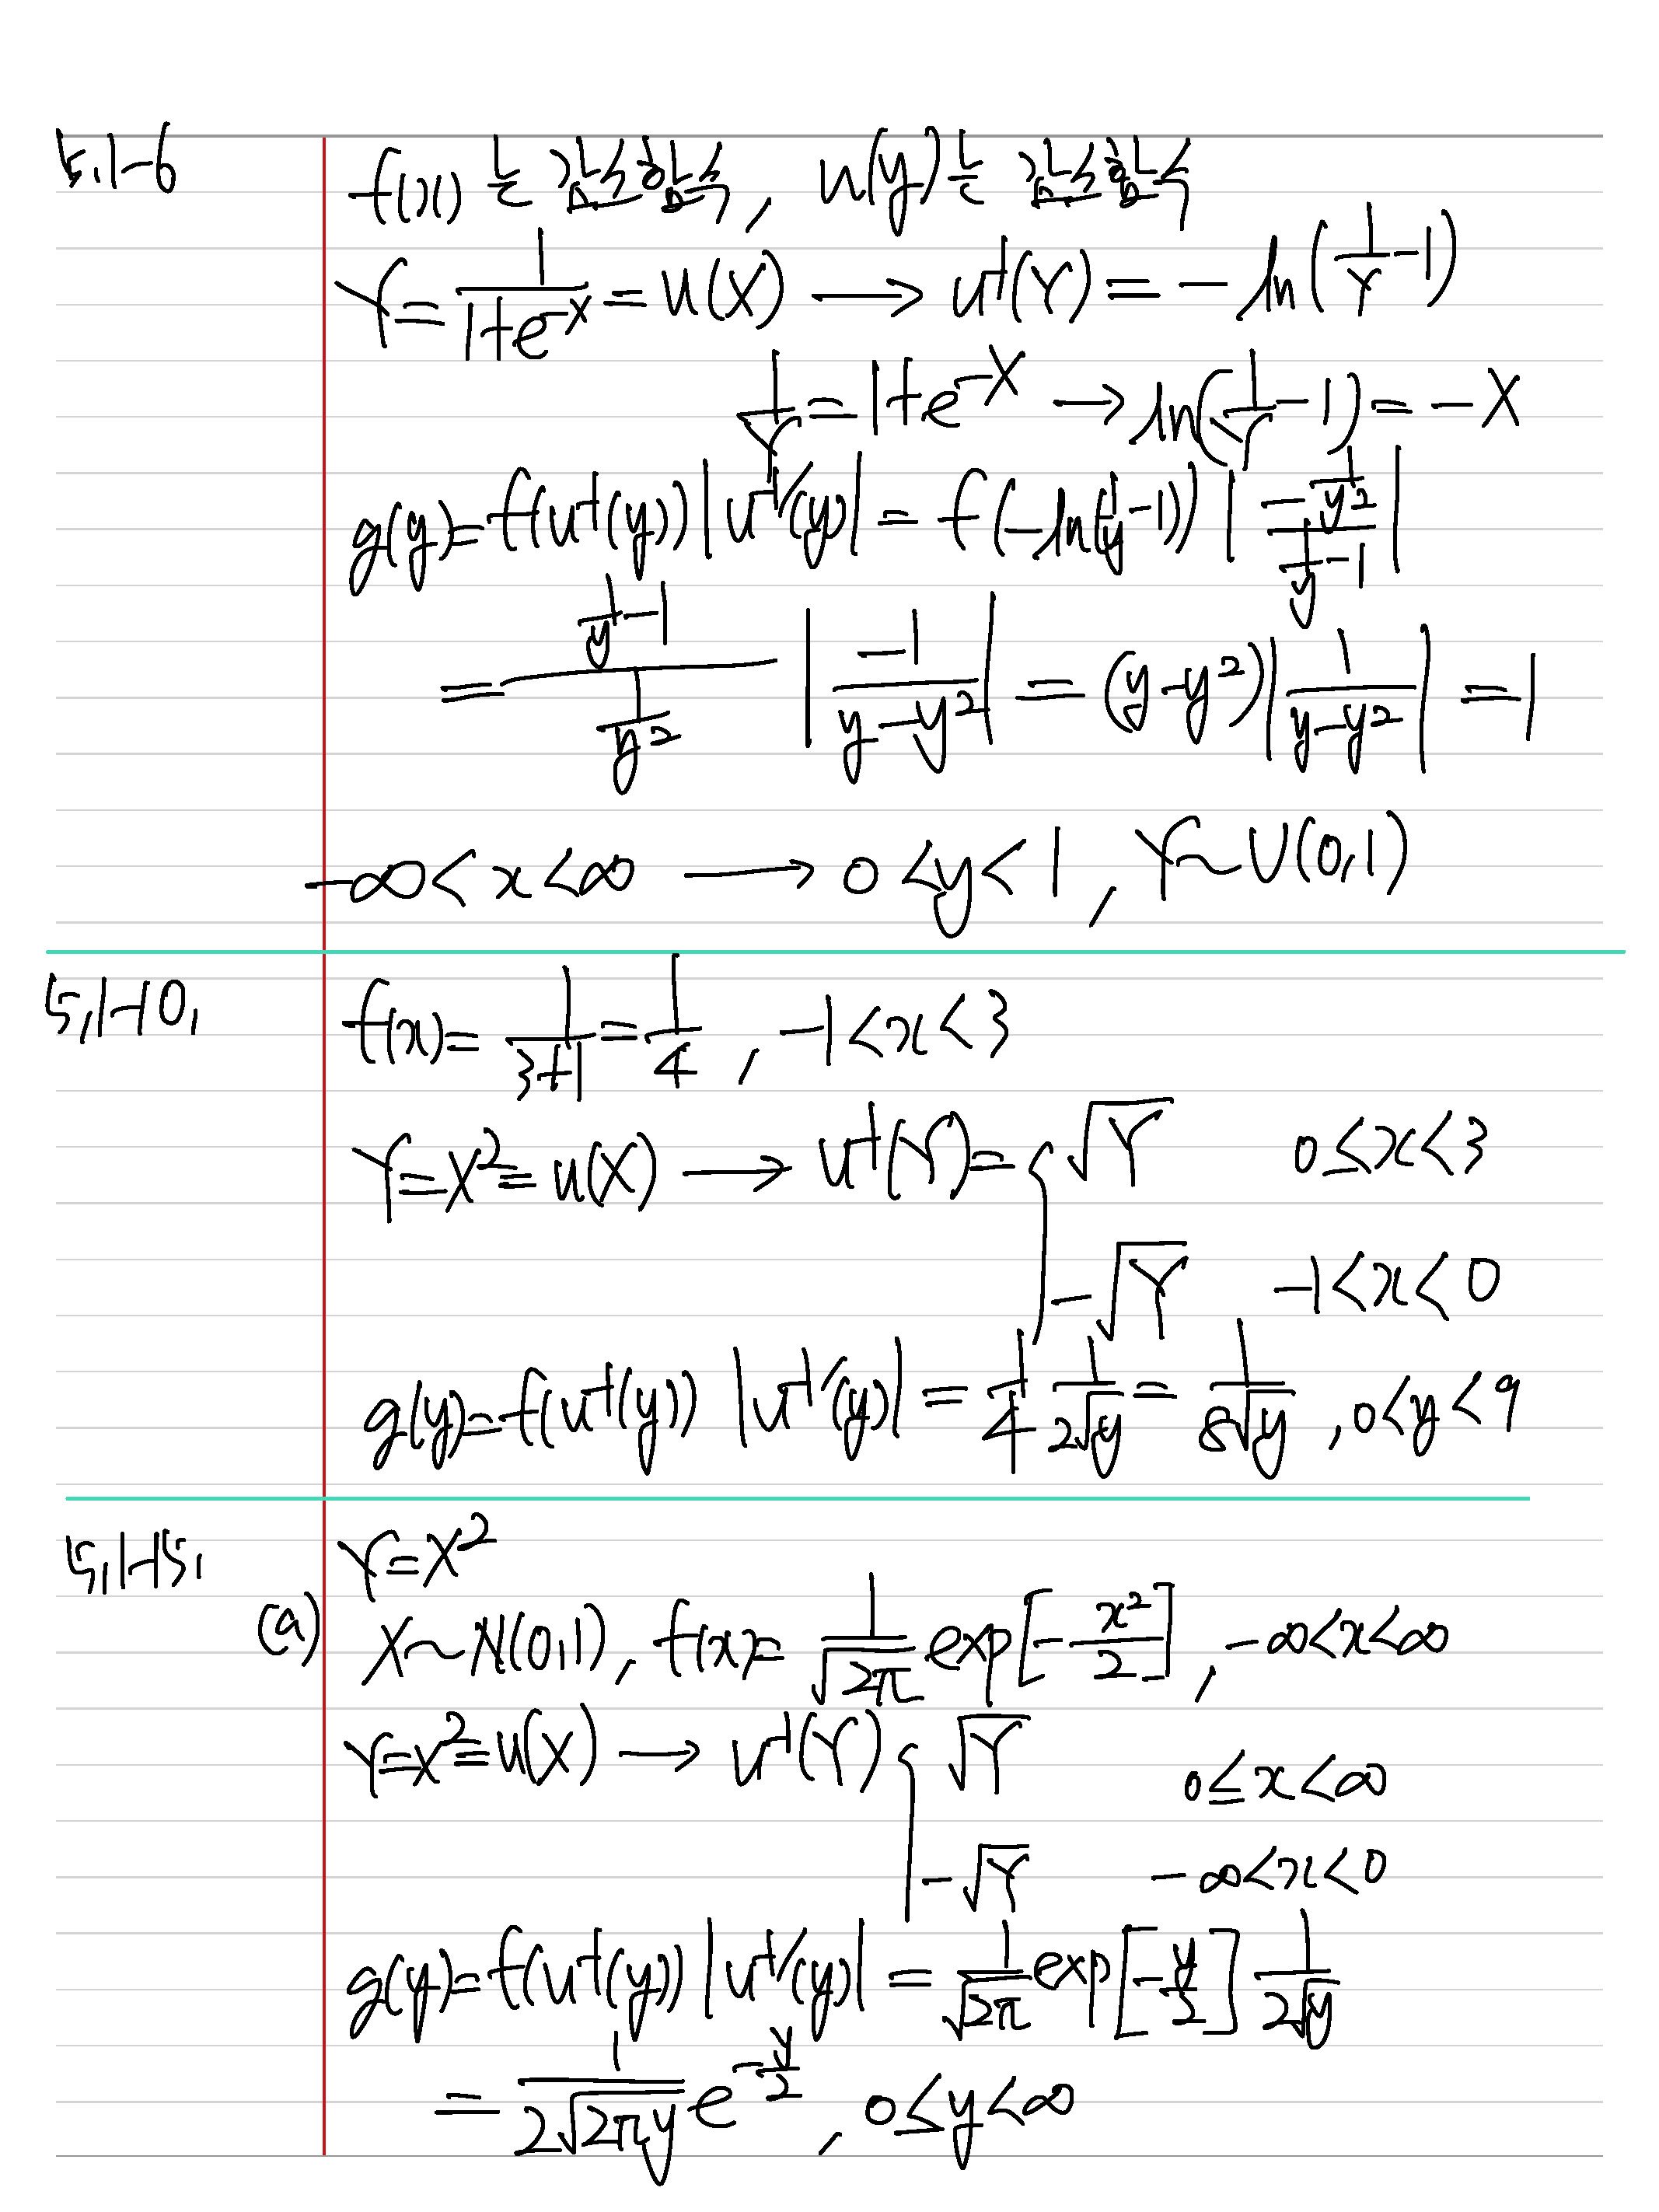 5.1-6
f(x)는 감소함수, u(y)는 감소함수
Y = 1/(1+e^-X) = u(X) → u^-1(Y) = -ln(1/Y - 1)
1/Y = 1+e^-X → ln(1/Y - 1) = -X
g(y) = f(u^-1(y)) |u^-1'(y)| = f(-ln(1/y - 1)) | (-1/y^2)/(1/y - 1) |
= (1/y - 1)/(1/y^2) | -1/(y-y^2) | = (y-y^2) | 1/(y-y^2) | = 1
-∞ < x < ∞ → 0 < y < 1, Y ~ U(0,1)
5.1-10.
f(x) = 1/(3+1) = 1/4, -1 < x < 3
Y = X^2 = u(X) → u^-1(Y) = { √Y 0 ≤ x < 3
-√Y -1 < x < 0
g(y) = f(u^-1(y)) |u^-1'(y)| = 1/4 1/(2√y) = 1/(8√y), 0 < y < 9
5.1-15.
Y = X^2
(a) X ~ N(0,1), f(x) = 1/√(2π) exp[-x^2/2], -∞ < x < ∞
Y = X^2 = u(X) → u^-1(Y) { √Y 0 ≤ x < ∞
-√Y -∞ < x < 0
g(y) = f(u^-1(y)) |u^-1'(y)| = 1/√(2π) exp[-y/2] 1/(2√y)
= 1/(2√(2πy)) e^(-y/2), 0 ≤ y < ∞